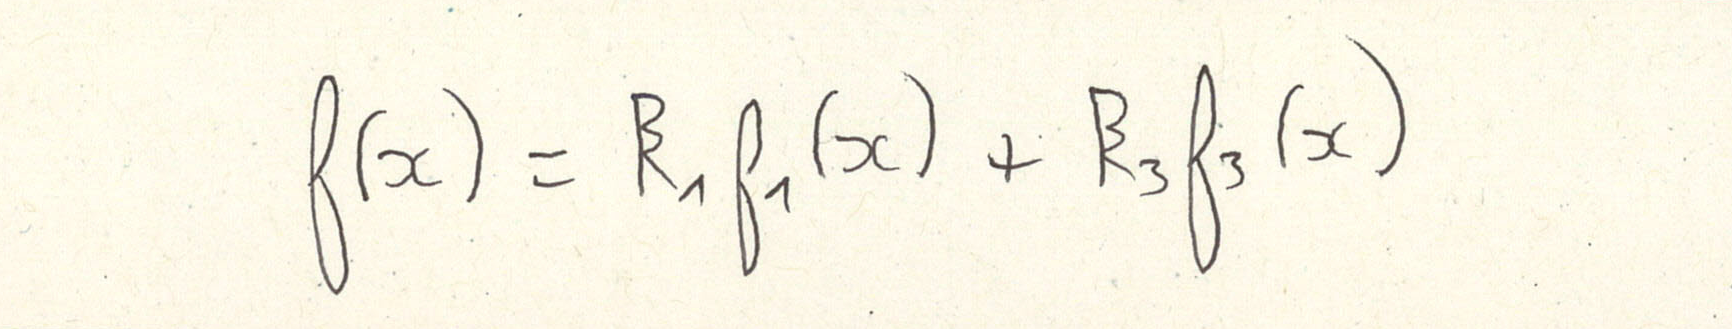 f(x) = R₁f₁(x) + R₃f₃(x)